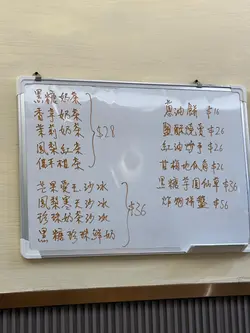 黑糖奶茶
香芋奶茶
茉莉奶茶
鳳梨紅茶
$28
芒果寒天沙冰
鳳梨寒天沙冰
珍珠奶茶沙冰
黑糖珍珠鮮奶
$36
蔥油餅 $16
$26
紅油炒手 $26
甘梅地瓜 $26
黑糖芋圓仙草 $36
炸物拼盤 $56